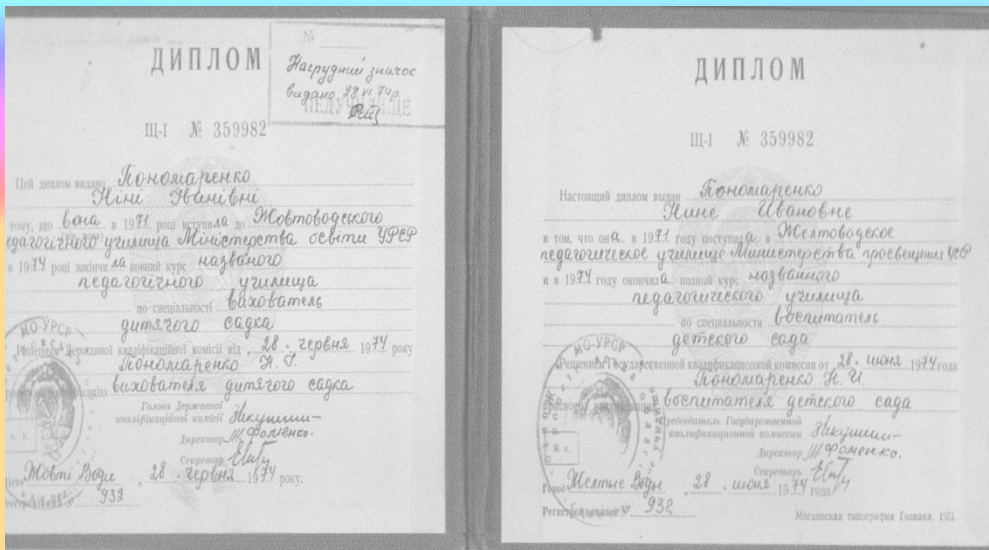 ДИПЛОМ
№
Нагрудний значок
видано 28 VI 74р.
ПЕДУЧИЛИЩЕ
Щ-I № 359982
Цей диплом видано Пономаренко
Ніні Іванівні
тому, що вона в 1971 році вступила до Жовтоводського
педагогічного училища Міністерства освіти УРСР
і в 1974 році закінчила повний курс названого
педагогічного училища
по спеціальності вихователь
дитячого садка
Рішенням Державної кваліфікаційної комісії від 28. червня 1974 року
Пономаренко Н. І.
вихователя дитячого садка
Голова Державної
кваліфікаційної комісії
Директор Фоменко.
Секретар
Місто Жовті Води 28. червня 1974 року.
932
МО-УРСР
ДИПЛОМ
Щ-I № 359982
Настоящий диплом выдан Пономаренко
Нине Ивановне
в том, что она в 1971 году поступила в Желтоводское
педагогическое училище Министерства просвещения УССР
и в 1974 году окончила полный курс названного
педагогического училища
по специальности воспитатель
детского сада
Решением Государственной квалификационной комиссии от 28. июня 1974 года
Пономаренко Н. И.
воспитателя детского сада
Председатель Государственной
квалификационной комиссии
Директор Фоменко.
Секретарь
Город Желтые Воды 28. июня 1974 года
Регистрационный № 932
МО-УРСР
Московская типография Гознака. 1973.